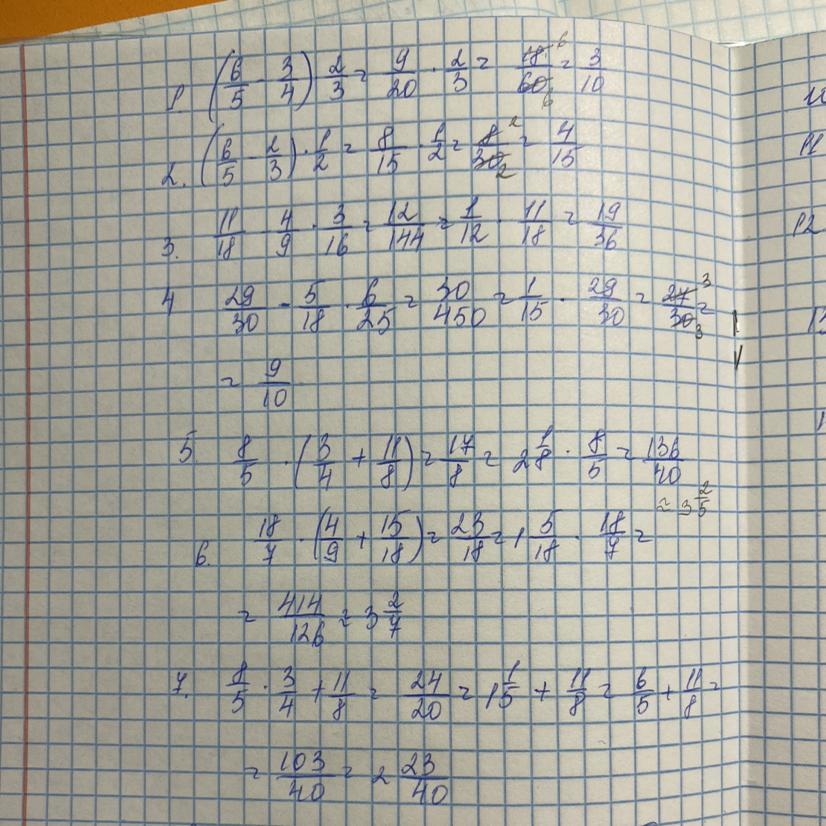 1. (6/5 - 3/4) 2/3 = 9/20 · 2/3 = 18/60 = 3/10
2. (6/5 - 2/3) · 1/2 = 8/15 · 1/2 = 8/30 = 4/15
3. 11/18 - 4/9 · 3/16 = 12/144 = 1/12 · 11/18 = 19/36
4 29/30 - 5/18 · 6/25 = 30/450 = 1/15 · 29/30 = 27/30 =
= 9/10
5. 8/5 · (3/4 + 11/8) = 17/8 = 2 1/8 · 8/5 = 136/40
= 3 2/5
6. 18/7 · (4/9 + 15/18) = 23/18 = 1 5/18 · 18/7 =
= 414/126 = 3 2/7
7. 8/5 · 3/4 + 11/8 = 24/20 = 1 1/5 + 11/8 = 6/5 + 11/8 =
= 103/40 = 2 23/40
11
12